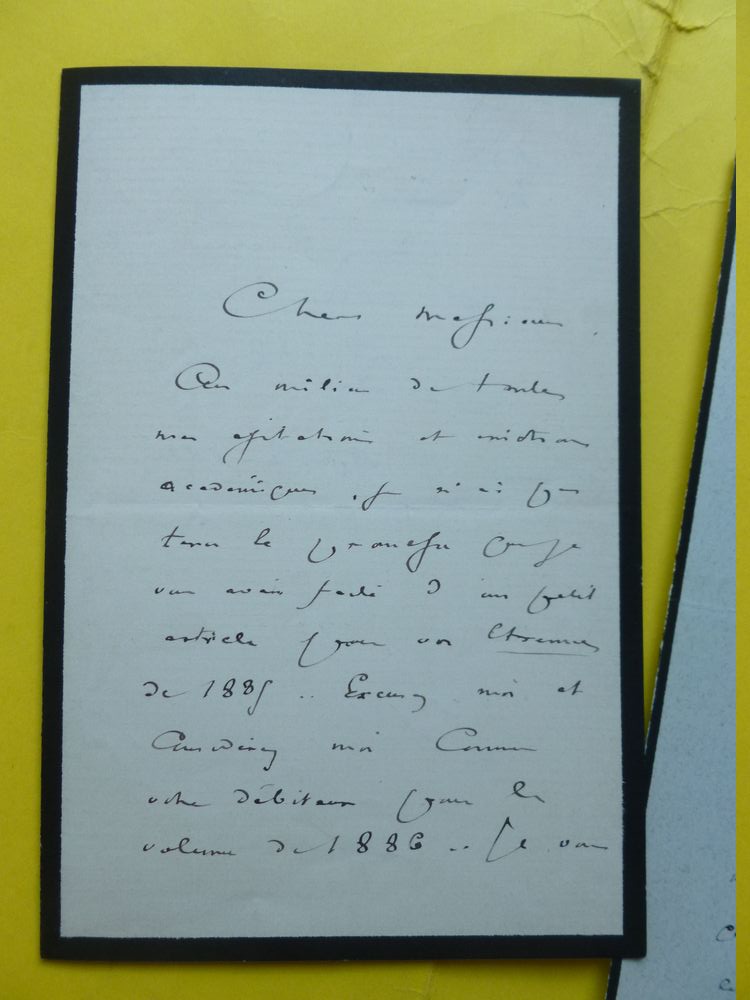 Cher Monsieur,
Au milieu de toutes
mes agitations et
académiques, je n'ai pu
tenir la promesse que je
vous avais faite d'un petit
article pour vos Etrennes
de 1885 .. Excusez moi et
Considérez moi Comme
votre débiteur pour le
volume de 1886 .. Je vous